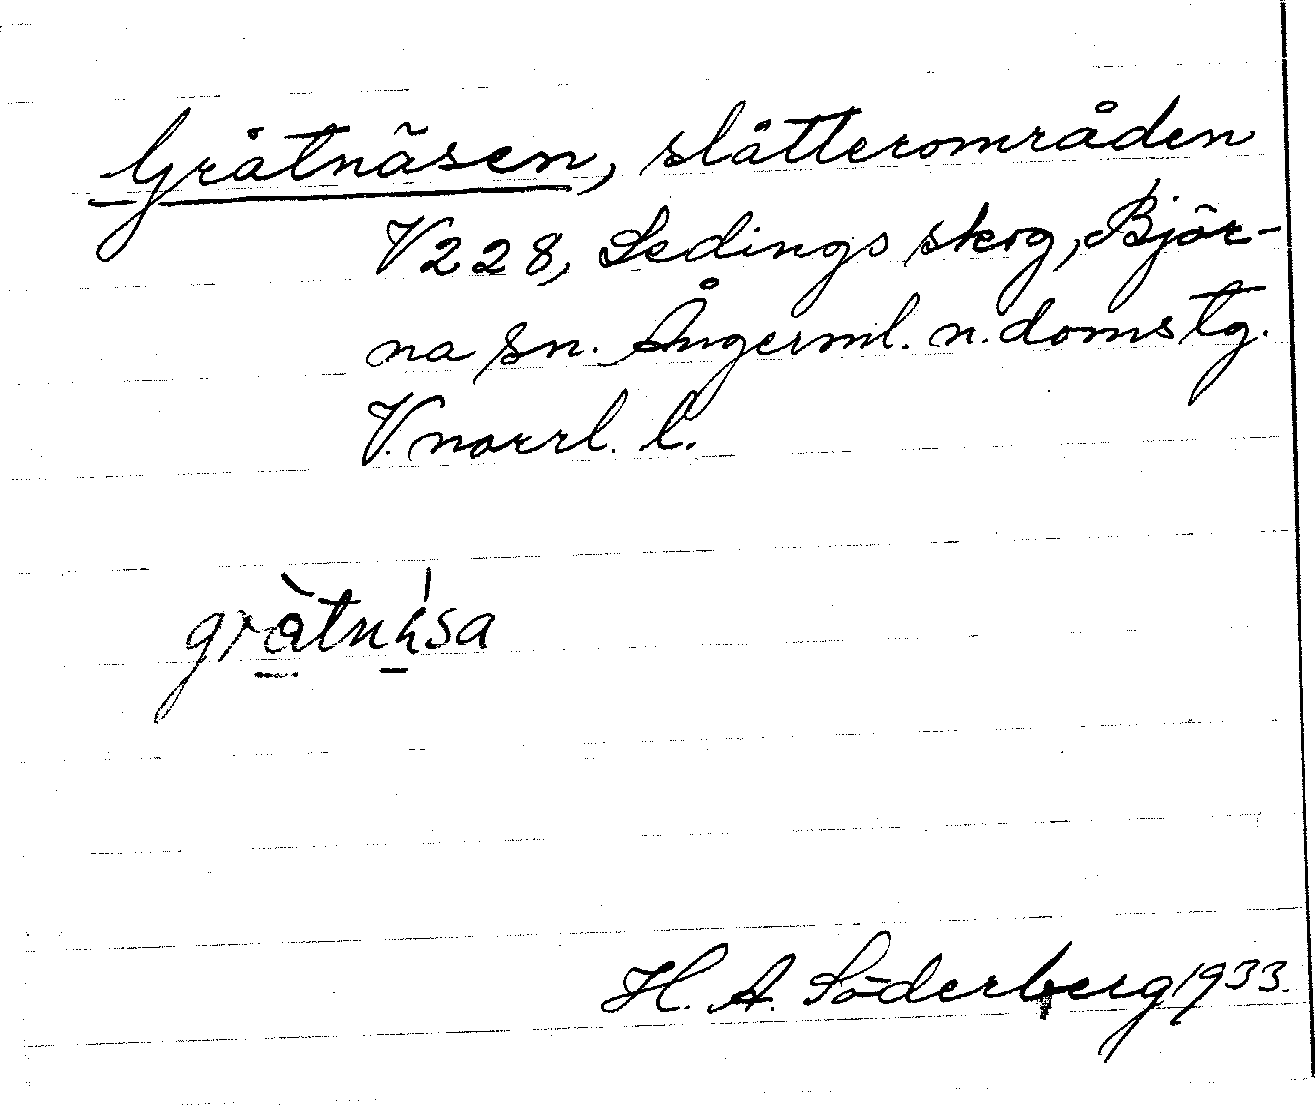 Gråtnäsen, slåtterområden
V228, Sedings skog, Björ-
na sn. Ångerml. n. doms tg.
V. norrl. l.
H. A. Söderberg 1933.